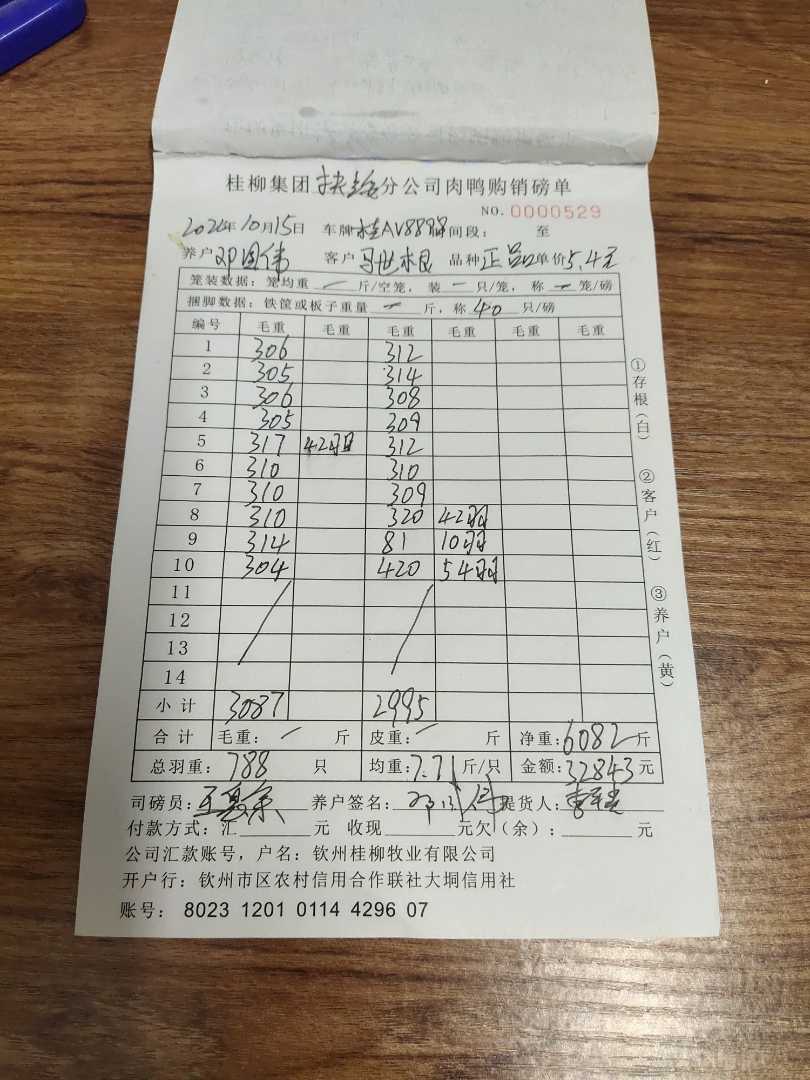 桂柳集团扶绥分公司肉鸭购销磅单
NO. 0000529
2024年10月15日 车牌桂AV889 间段： 至
养户 邓国伟 客户 马世木良 品种 正品 单价5.4元
笼装数据：笼均重 一 斤/空笼，装 一 只/笼，称 一 笼/磅
捆脚数据：铁筐或板子重量 一 斤，称 40 只/磅
编号 毛重 毛重 毛重 毛重 毛重 毛重
1 306 312
2 305 314
3 306 308
4 305 309
5 317 42羽 312
6 310 310
7 310 309
8 310 320 42羽
9 314 81 10羽
10 304 420 54羽
11
12
13
14
小计 3087 2995
合计 毛重：一 斤 皮重：一 斤 净重：6082斤
总羽重：788 只 均重：7.71斤/只 金额：32843元
司磅员： 养户签名：邓国伟 提货人：
付款方式：汇 元 收现 元欠（余）： 元
公司汇款账号，户名：钦州桂柳牧业有限公司
开户行：钦州市区农村信用合作联社大垌信用社
账号： 8023 1201 0114 4296 07
①存根（白）
②客户（红）
③养户（黄）